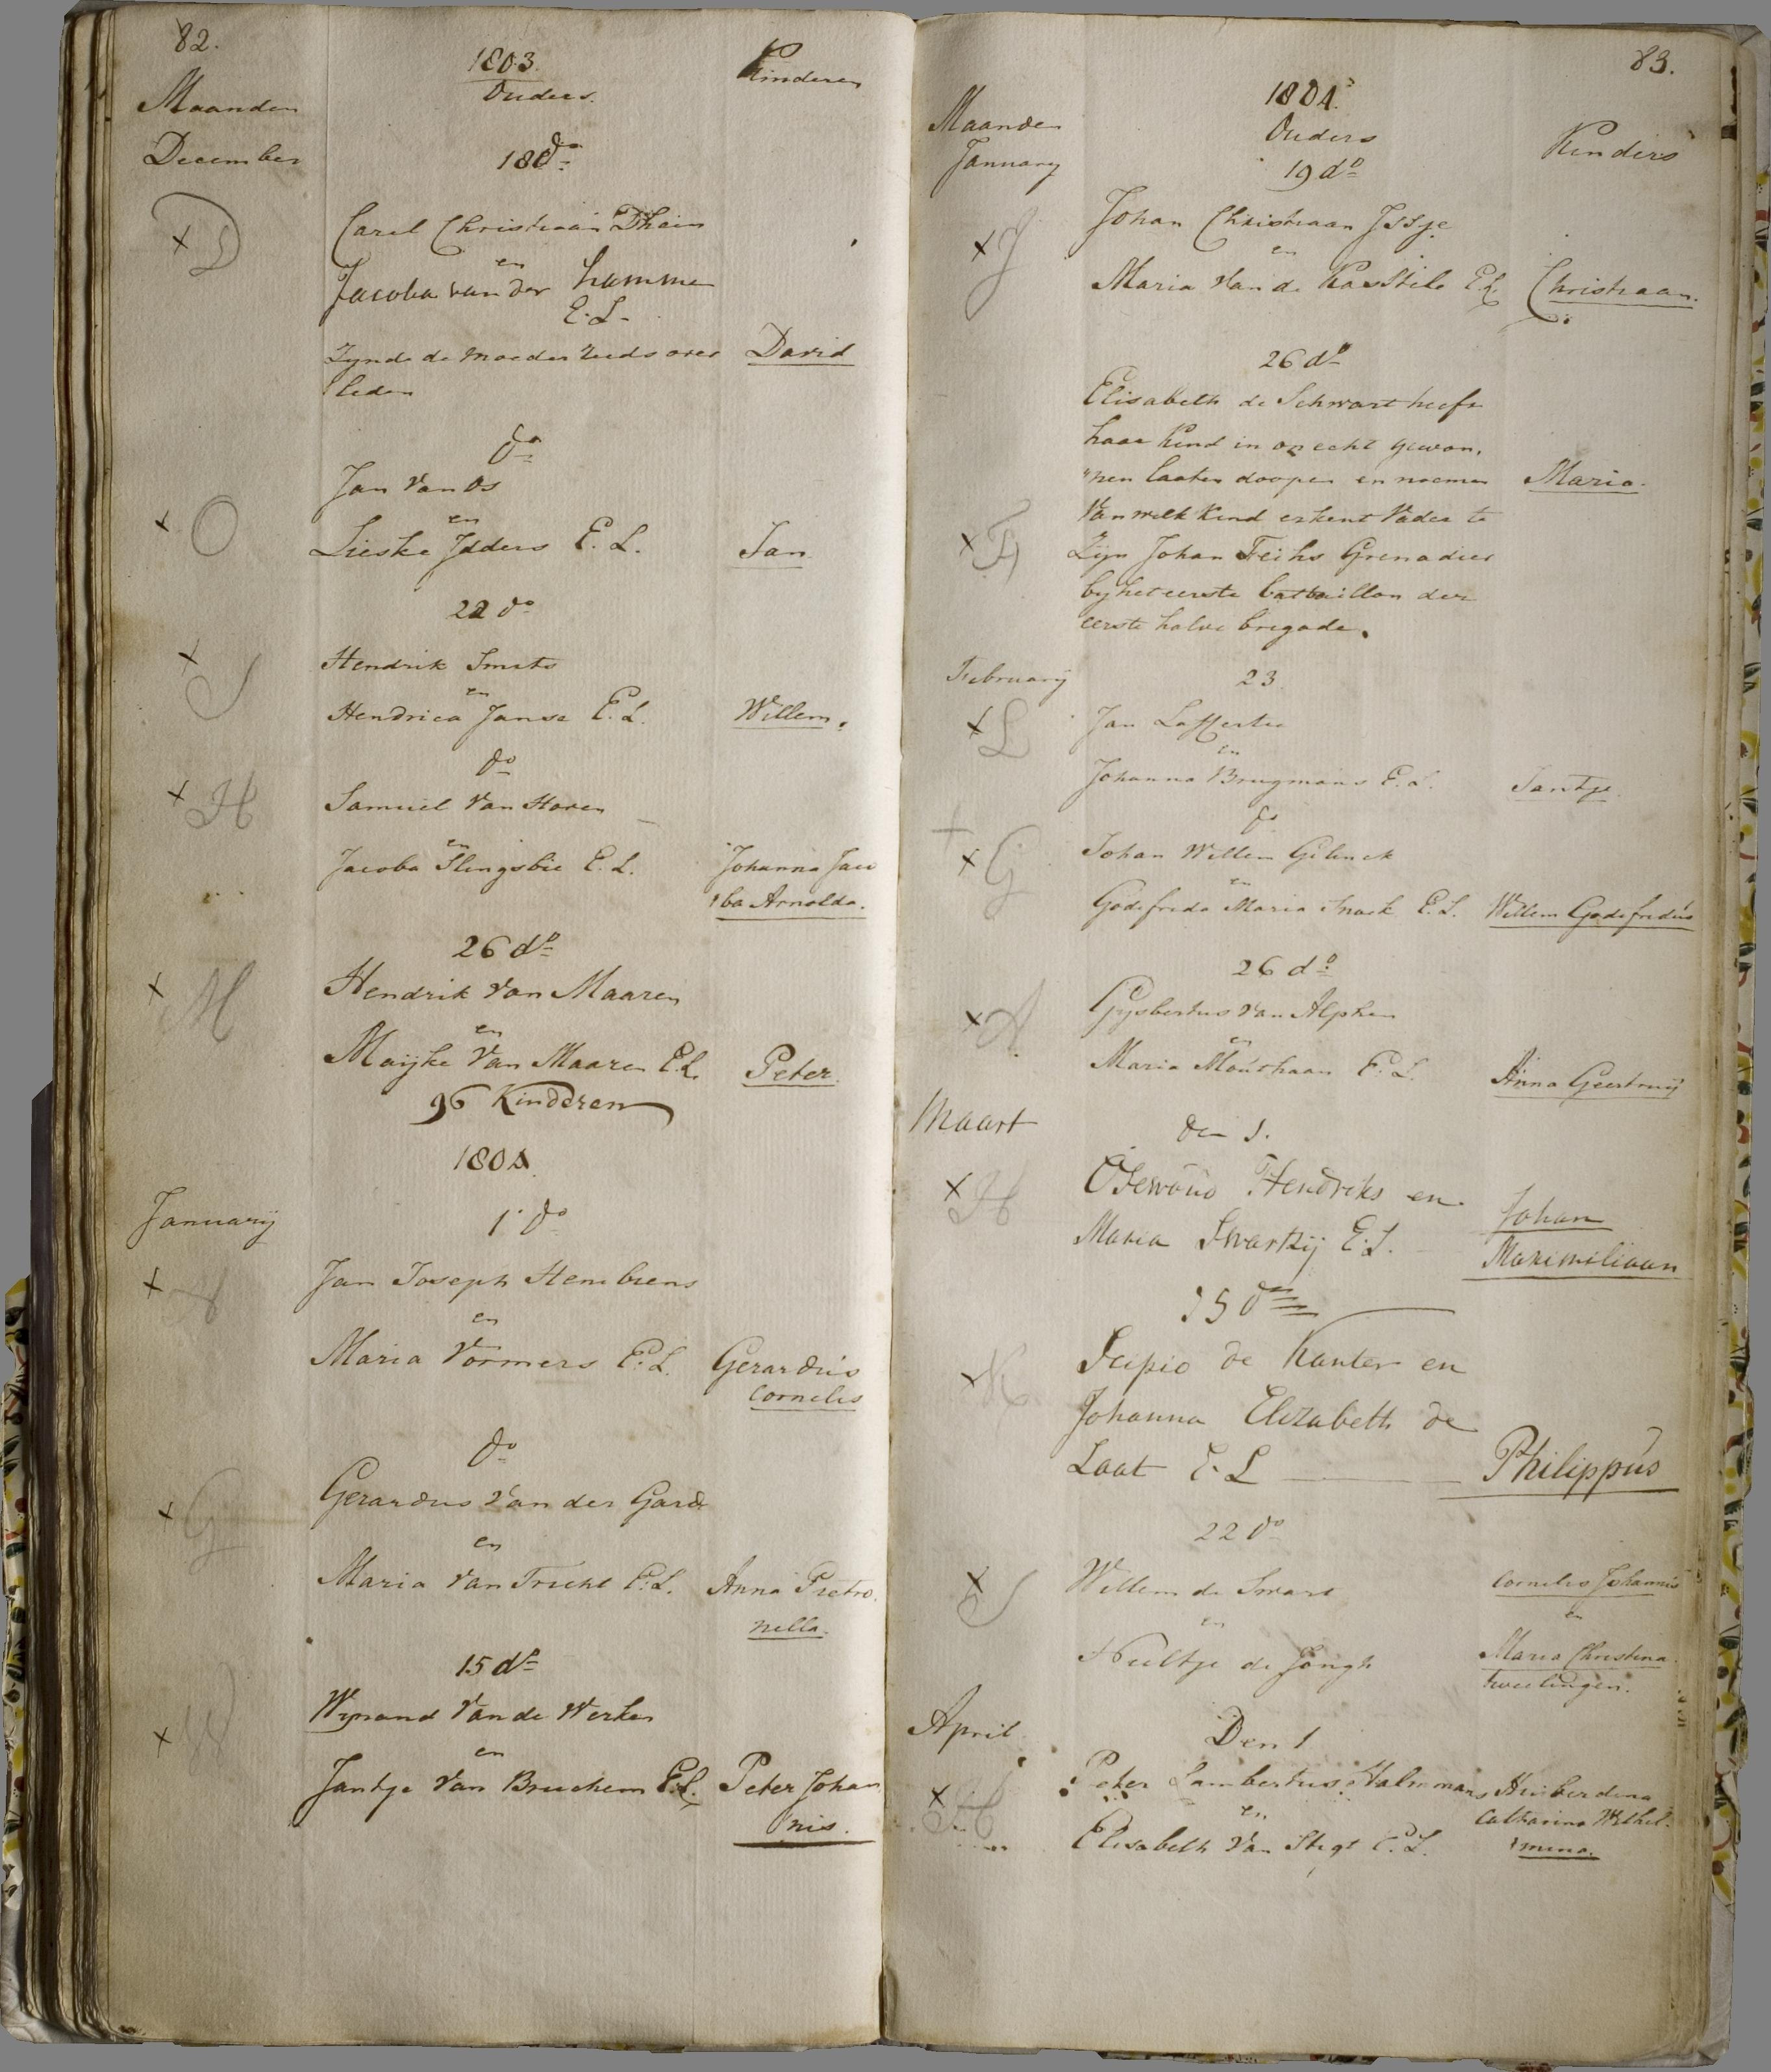 82.
1803.
Ouders.
Kinderen
Maanden
December
18 do
D
Carel Christiaan Dhain
en
Jacoba van der hamme
E. L.
Zynde de moeder reeds over
leden
David
do
O
Jan Van Os
en
Lieske Ydders E. L.
Jan
22 do
S
Hendrik Smits
en
Hendrica Janse E. L.
Willem.
do
H
Samuel Van Haren
en
Jacoba Slingsbie E. L.
Johanna Jaco
ba Arnolda.
26 do
M
Hendrik Van Maaren
en
Maijke Van Maaren E. L.
Peter.
96 Kinderen
1804
Januarij
1 do
H
Jan Joseph
en
Maria Vormers E. L.
Gerardus
Cornelis
do
G
Gerardus Van der Garde
en
Maria Van Tricht E. L.
Anna Pietro
nella.
15 do
W
Wynand Van de Werken
en
Jantje Van Bruchem E. L.
Peter Johan
nis.
83.
1804.
Maanden
Ouders
Kinders
January
19 do
J
Johan Christiaan Issje
en
Maria Van de Kasstele E L
Christiaan.
26 do
Elisabeth de Schwart heeft
haar kind in onecht gewon,
nen laaten doopen en noemen
Maria.
Van welk kind erkent Vader te
F
Zijn Johan Feihs Grenadier
by het eerste battaillon der
eerste halve brigade.
February
23
L
Jan Laffertee
en
Johanna Brugmans E. L.
Jantje.
do
G
Johan Willem Gilinck
en
Godefrida Maria Snoek E. L.
Willem Godefridus
26 do
A
Gysbertus Van Alphen
en
Maria Mouthaan E. L.
Anna Geertruij
Maart
den 1.
H
Hendriks en
Johan
Maria Swartzij E. L.
Maximiliaan
15 do
K
Scipio de Kanter en
Johanna Elizabeth de
Laat E. L
Philippus
22 do
S
Willem de Swart
Cornelis Johannis
en
en
Neeltje de Jongh
Maria Christina
tweelingen.
April
Den 1
H
Peter Lambertus Halmmans
Huiberdina
en
Catharina Wilhel-
Elisabeth Van Stigt E. L.
mina.